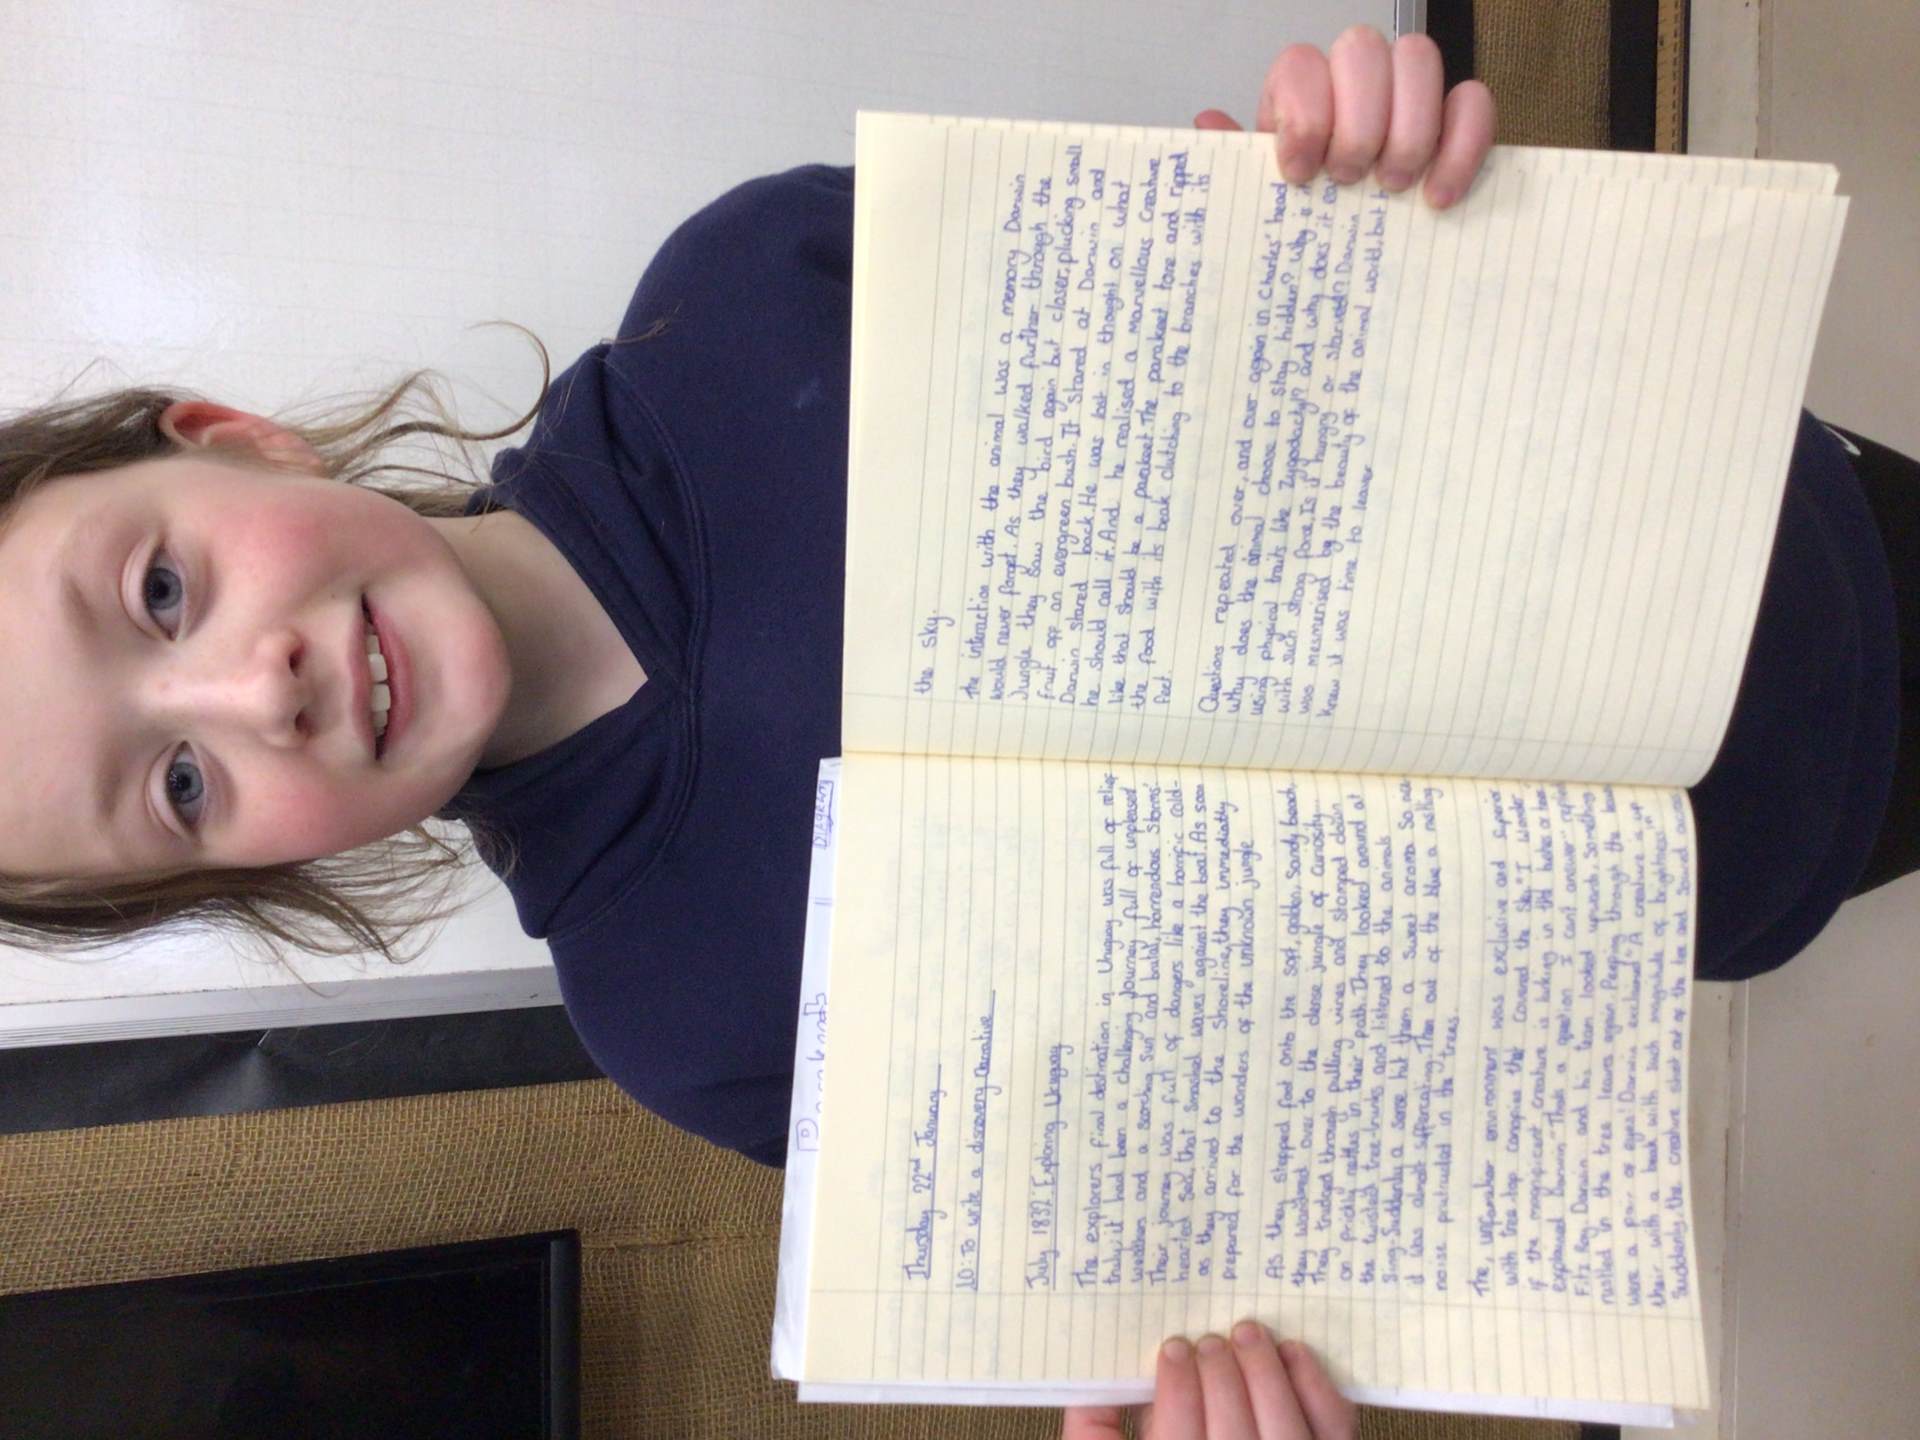 Thursday 22nd January
LO: To write a discovery narrative
July 1832: Exploring Uruguay
The explorers final destination in Uruguay was full of relief
truly it had been a challenging journey full of unpleased
weathers and a scorching sun and brutal, horrendous storms.
Their journey was full of dangers like a horrific cold-
hearted Sea, that smashed waves against the boat. As soon
as they arrived to the shoreline, they immediatly
prepared for the wonders of the unknown jungle
As they stepped foot onto the soft, golden, sandy beach,
they wandered over to the dense jungle of curiosity.
They trudged through pulling vines and stomped down
on prickly nettles in their path. They looked around at
the twisted tree-trunks and listened to the animals
Sing. Suddenly a sense hit them a sweet aroma so nice
it was almost suffercating. Then out of the blue a rustling
noise protruded in the trees.
The, unfamiliar environment was exclusive and superior
with tree-top canopies that covered the sky. "I wonder
if the magnificent creature is lurking in the
explained Darwin "Thats a question I cant answer" replied
Fitz Roy Darwin and his team looked upwards. Something
rustled in the tree leaves again. Peeping through the
were a pair of eyes! Darwin exclaimed "A creature is up
their with a beak with such magnitude of brightness"
Suddenly the creature shot out of the tree and soared across
the sky.
The interaction with the animal was a memory Darwin
would never forget. As they walked further through the
Jungle they saw the bird again but closer, plucking small
fruit off an evergreen bush. It stared at Darwin and
Darwin stared back. He was lost in thought on what
he should call it. And he realised a marvellous creature
like that should be a parakeet. The parakeet tore and ripped
the food with its beak clutching to the branches with its
feet.
Questions repeated over, and over again in Charles' head
why does the animal choose to stay hidden? Why is it
using physical traits like zygodactyl? and why does it eat
with such strong force. Is it hungry or starved? Darwin
was mesmerised by the beauty of the animal world, but
knew it was time to leave
DIAGRAM